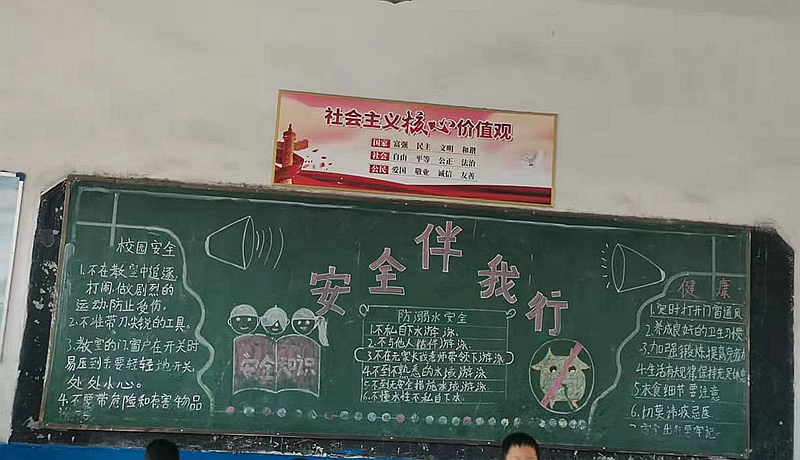 社会主义核心价值观
国家 富强 民主 文明 和谐
社会 自由 平等 公正 法治
公民 爱国 敬业 诚信 友善
安全伴我行
校园安全
1.不在教室中追逐
打闹.做剧烈的
运动.防止受伤.
2.不准带刀尖锐的工具.
3.教室的门窗户在开关时
易压到手要轻轻地开关.
处处小心。
4.不要带危险和有害物品
安全知识
防溺水安全
1.不私自下水游泳.
2.不与他人结伴游泳.
3.不在无家长或老师带领下游泳
4.不到不熟悉的水域游泳
5.不到无安全措施水域游泳
6.不懂水性不私自下水.
健康
1.定时打开门窗通风
2.养成良好的卫生习惯
3.加强锻炼提高免疫力
4.生活有规律保持充足休息
5.衣食细节要注意
6.切莫讳疾忌医
7.安全出行要牢记